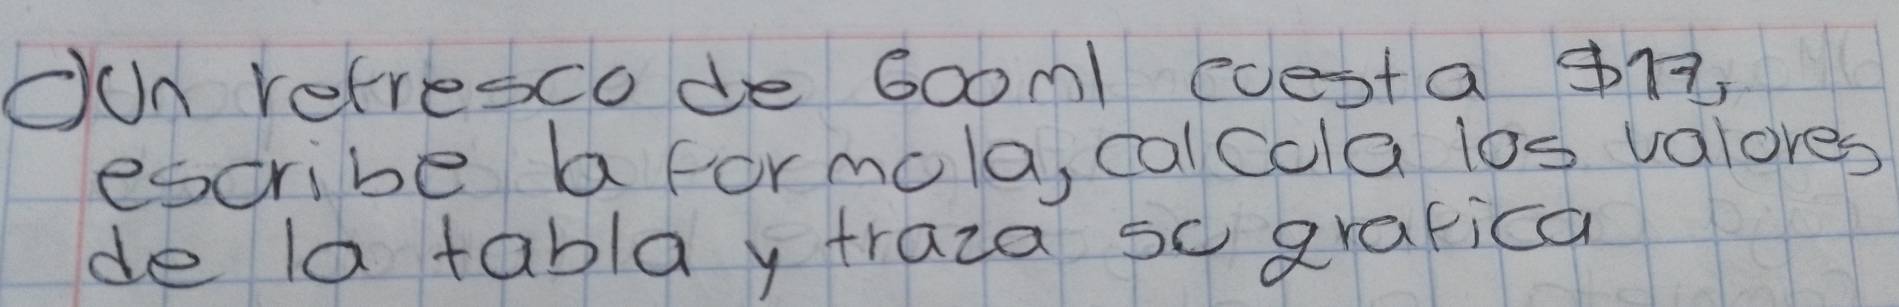 Un refresco de 600ml cuesta $17,
escribe la formula, calcula los valores
de la tabla y traza su grafica